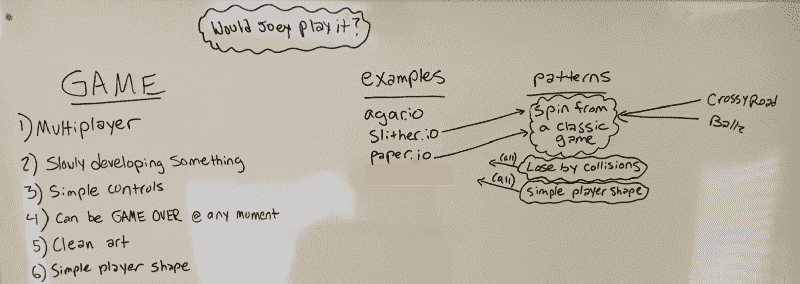 Would Joey play it?
GAME
1) Multiplayer
2) Slowly developing something
3) Simple controls
4) Can be GAME OVER @ any moment
5) Clean art
6) Simple player shape
examples
agar.io
Slither.io
paper.io
patterns
Spin from
a classic
game
(all)
Lose by collisions
(all)
Simple player shape
Crossy Road
Ballz